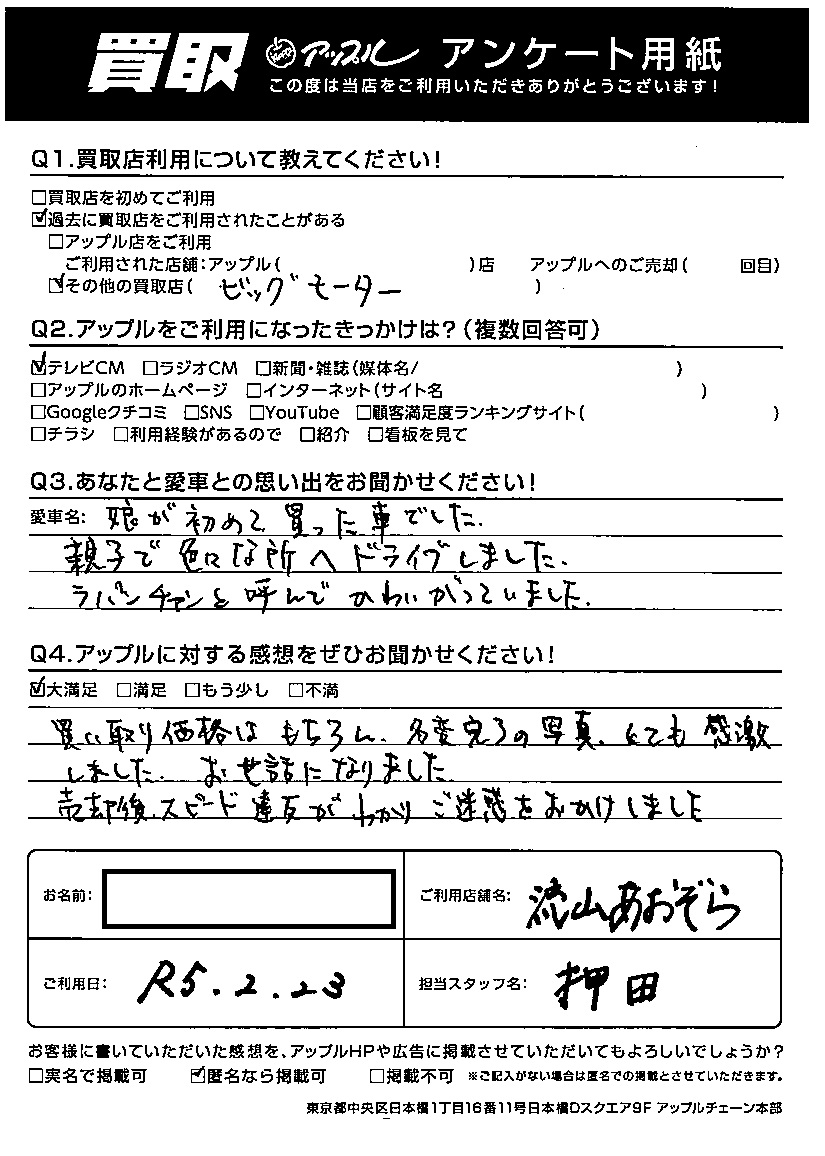 買取 アップル アンケート用紙
この度は当店をご利用いただきありがとうございます!
Q1.買取店利用について教えてください!
□買取店を初めてご利用
☑過去に買取店をご利用されたことがある
□アップル店をご利用
ご利用された店舗:アップル( )店 アップルへのご売却( 回目)
☑その他の買取店( ビッグモーター )
Q2.アップルをご利用になったきっかけは?(複数回答可)
☑テレビCM □ラジオCM □新聞・雑誌(媒体名/ )
□アップルのホームページ □インターネット(サイト名 )
□Googleクチコミ □SNS □YouTube □顧客満足度ランキングサイト( )
□チラシ □利用経験があるので □紹介 □看板を見て
Q3.あなたと愛車との思い出をお聞かせください!
愛車名: 娘が初めて買った車でした.
親子で色々な所へドライブしました.
ラパンチャンと呼んでかわいがっていました.
Q4.アップルに対する感想をぜひお聞かせください!
☑大満足 □満足 □もう少し □不満
買い取り価格はもちろん、名変完了の写真、とても感激
しました. お世話になりました
売却後、スピード違反がわかりご迷惑をおかけしました
お名前: ご利用店舗名: 流山あおぞら
ご利用日: R5.2.23 担当スタッフ名: 押田
お客様に書いていただいた感想を、アップルHPや広告に掲載させていただいてもよろしいでしょうか?
□実名で掲載可 ☑匿名なら掲載可 □掲載不可 ※ご記入がない場合は匿名での掲載とさせていただきます。
東京都中央区日本橋1丁目16番11号日本橋Dスクエア9F アップルチェーン本部